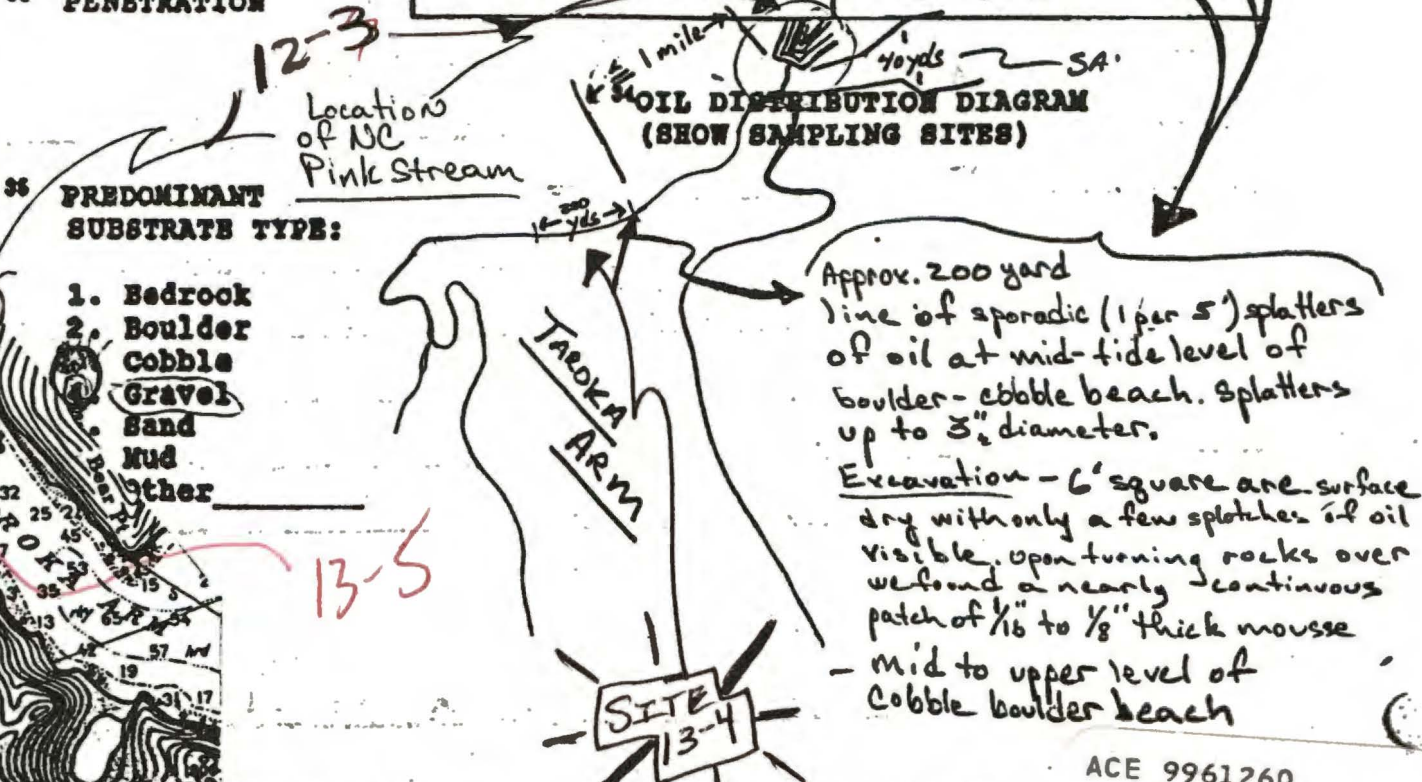 PENETRATION
12-3
1 mile
40yds
SA.
OIL DISTRIBUTION DIAGRAM
(SHOW SAMPLING SITES)
Location
of NC
Pink Stream
36 PREDOMINANT
SUBSTRATE TYPE:
200
yds
1. Bedrock
2. Boulder
Cobble
Gravel
Sand
Mud
Other
TAROKA
ARM
Approx. 200 yard
line of sporadic (1 per 5') splatters
of oil at mid-tide level of
boulder-cobble beach. Splatters
up to 3" diameter.
Excavation - 6' square are surface
dry with only a few splotches of oil
visible. upon turning rocks over
we found a nearly continuous
patch of 1/16" to 1/8" thick mousse
- mid to upper level of
Cobble boulder beach
13-5
SITE
13-4
Bear
32
25
45
53
35
15
13
65
54
42
57
19
31
17
ACE 9961260